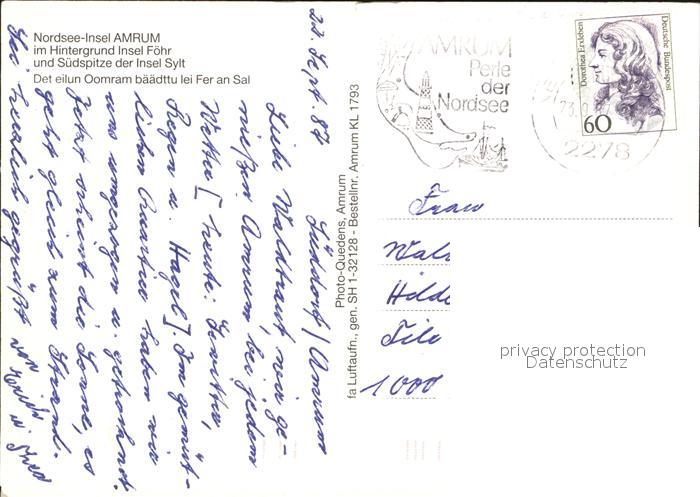 Nordsee-Insel AMRUM
im Hintergrund Insel Föhr
und Südspitze der Insel Sylt
Det eilun Oomram bäädttu lei Fer an Sal
22. Sept. 87
Süddorf / Amrum
Liebe Waldtraut wir ge-
nießen Amrum, bei jedem
Wetter [heute: Gewitter,
Regen u. Hagel]. Im gemüt-
lichen Quartier haben wir
uns umgezogen u. getrocknet.
Jetzt scheint die Sonne, es
geht gleich zum Strand.
Sei herzlich gegrüßt
von
Photo-Quedens, Amrum
fa Luftaufn., gen. SH 1-32128 - Bestellnr. Amrum KL 1793
AMRUM
Perle
der
Nordsee
2278
Dorothea Erxleben
Deutsche Bundespost
60
Frau
Wal
Hilde
File
1000
privacy protection
Datenschutz